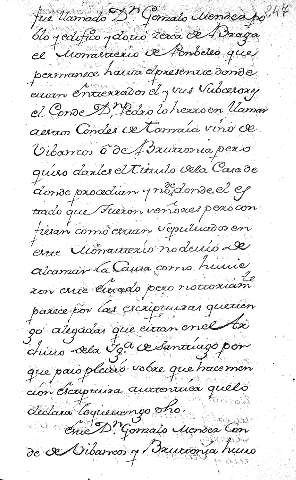 247
fue llamado Dn Gonzalo Mendez po
blo y edifico y doto zerca de Braga
el Monasterio de Ponbeiro que
permanece hasta el presente donde
estan enterrados el y sus subcesores
el Conde Dn Pedro lo herro en llamar
a estos Condes de Tomiño vino de
Vibancos o de Brutonia pero
quiso darles el Titulo dela Casa de
donde procedian y no donde el es
tado que fueron señores pero con
fiesan como estan sepultados en
este Monasterio no devio de
alcanzar la Causa como huvie
ron este Estado pero notoriamte
parece por las escripturas que ten
go alegadas que estan en el Ar
chivo dela Yga de Santiago por
que paso pleito sobre que hacemen
cion escriptura autentica que lo
declara loquetengo dho.
Este Dn Gonzalo Mendez Con
de de Vibancos y Brutonia huvo